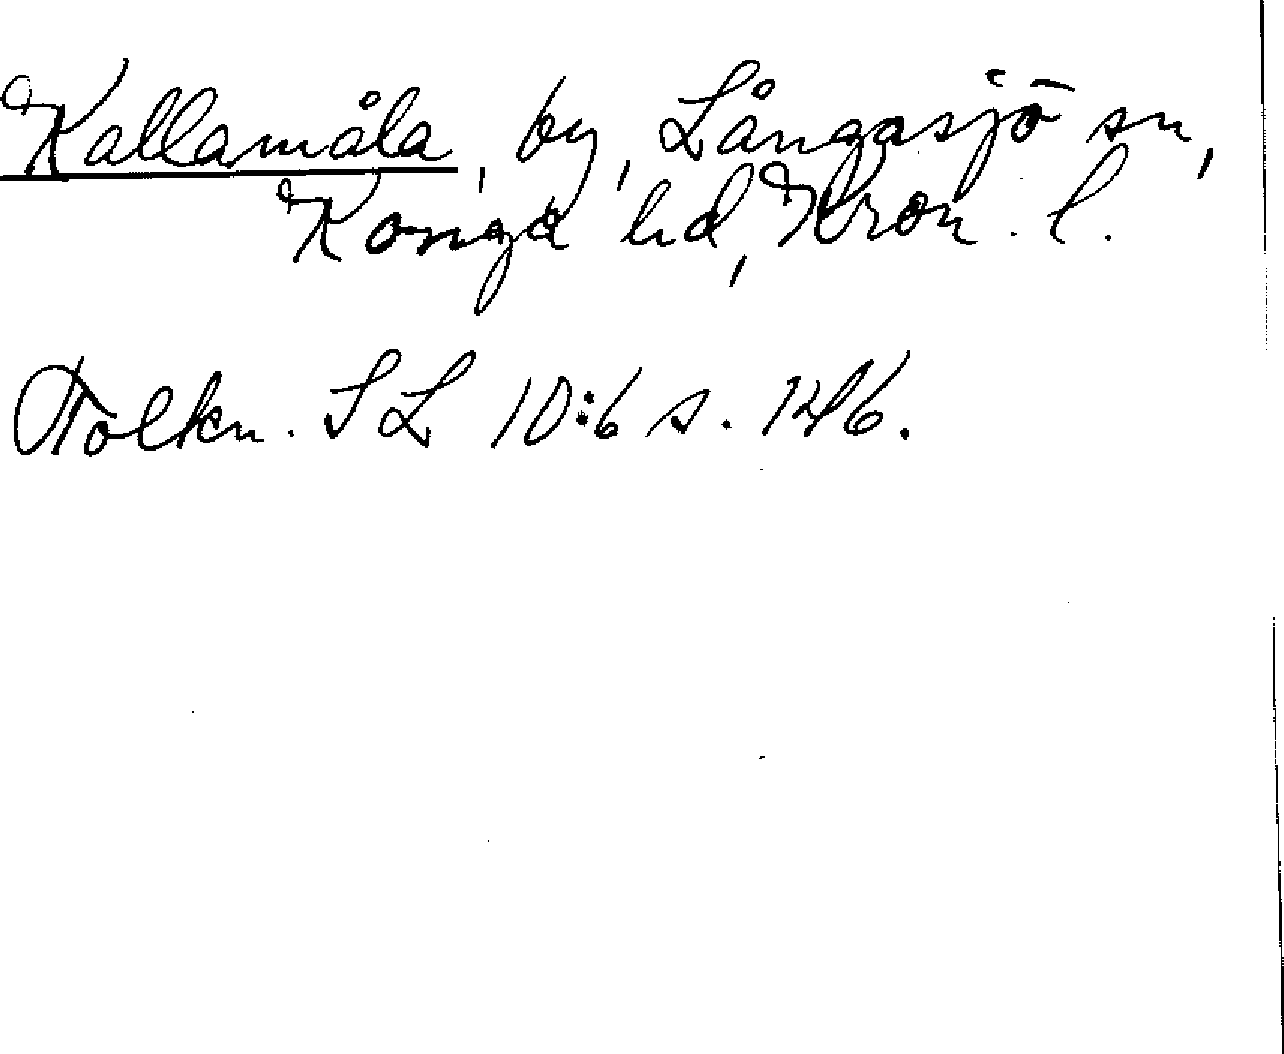 Kallamåla, by, Långasjö sn,
Konga hd, Kron. l.
Tolkn. SL 10:6 s. 146.